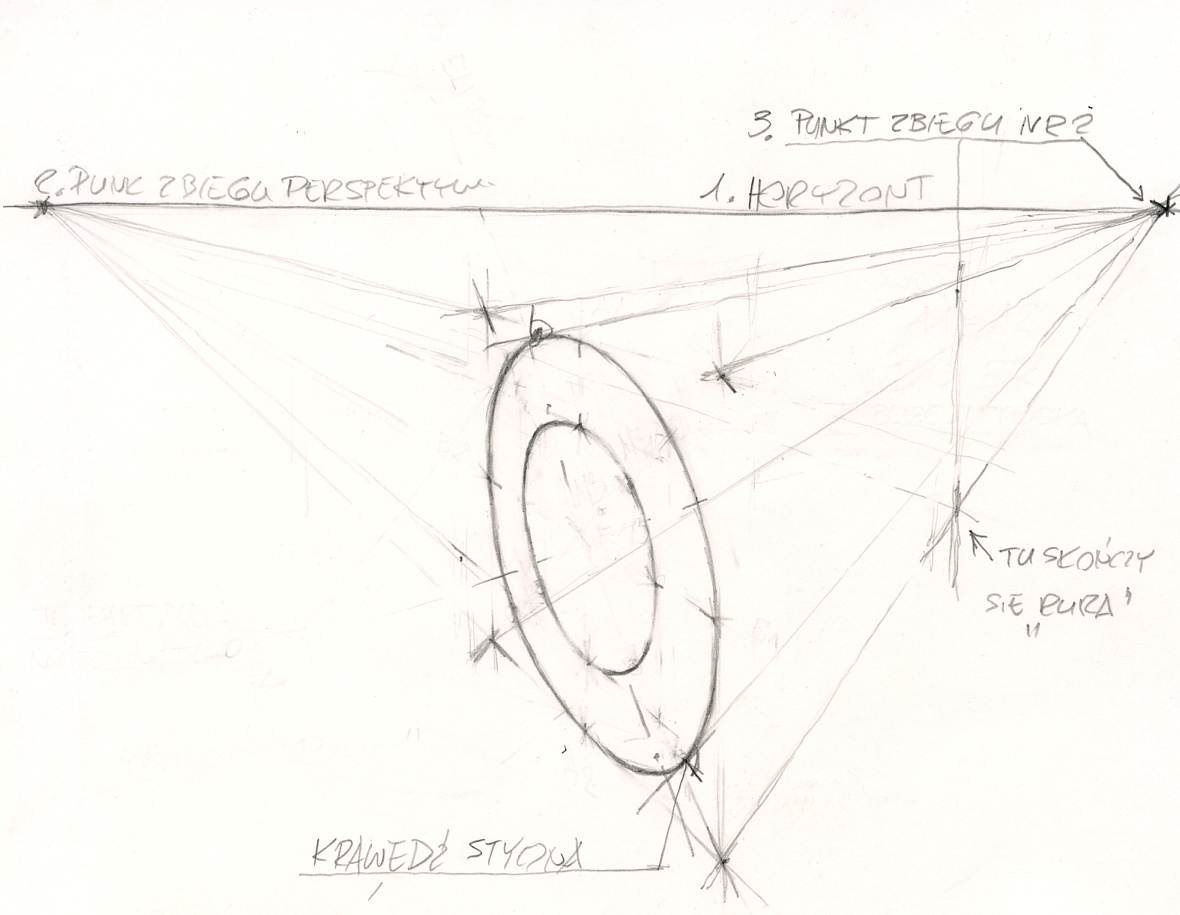 3. PUNKT ZBIEGU NR 2
2. PUNK ZBIEGU PERSPEKTYW
1. HORYZONT
TU SKOŃCZY
SIĘ "RURA"
KRAWĘDŹ STYCZNA